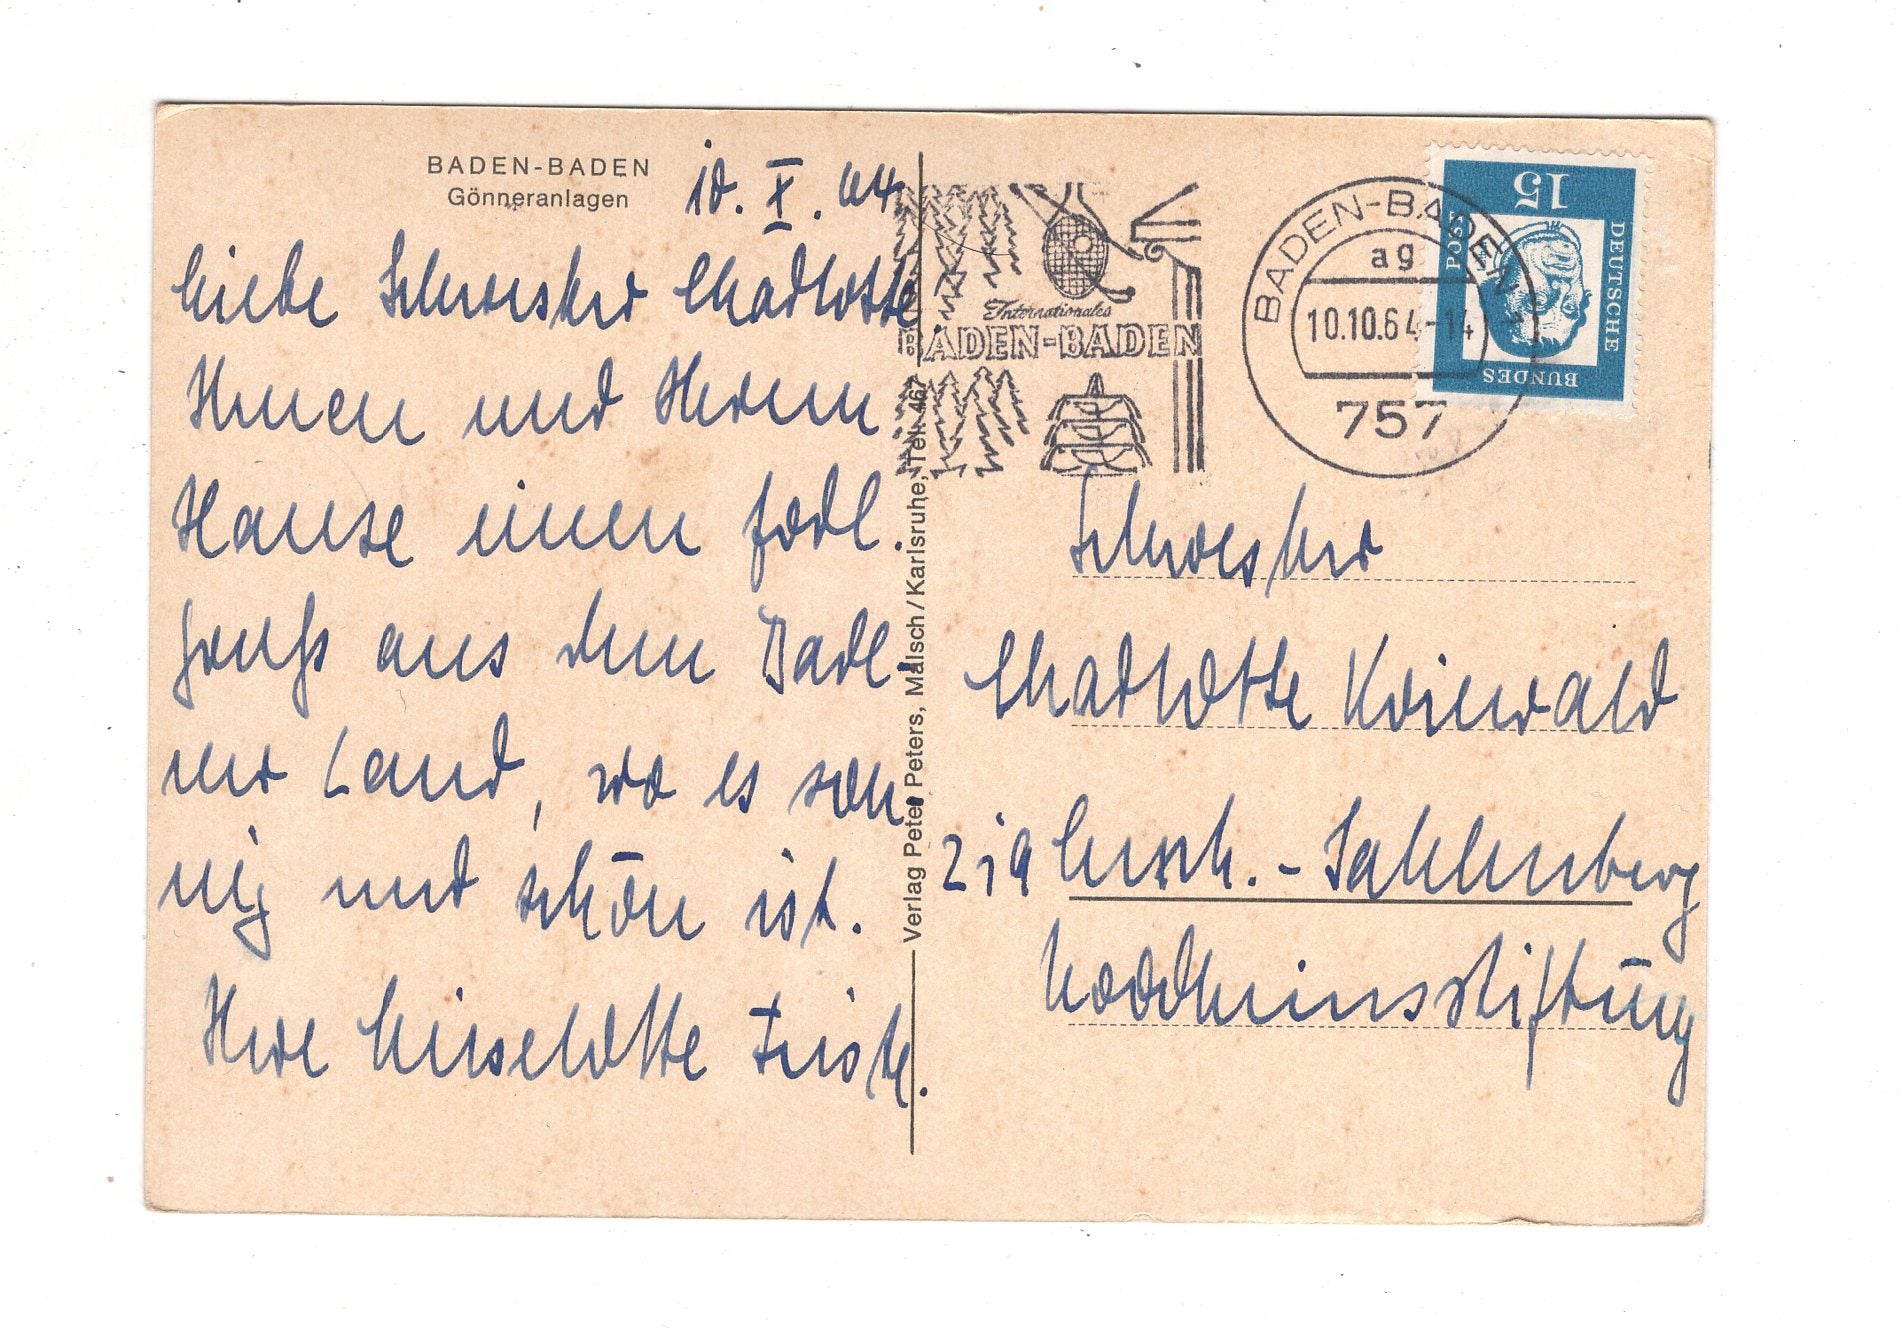 BADEN-BADEN
Gönneranlagen
10. X. 64
Liebe Schwester Charlotte
Ihnen und Ihrem
Hause einen frdl.
Gruß aus dem Bade-
ner Land, wo es son-
nig und schön ist.
Ihre Lieselotte
Verlag Peter Peters, Malsch/Karlsruhe, Tel. 467
Internationales
BADEN-BADEN
BADEN-BADEN
ag
10.10.64-14
757
15
DEUTSCHE
BUNDES
POST
Schwester
Charlotte
Salzenberg